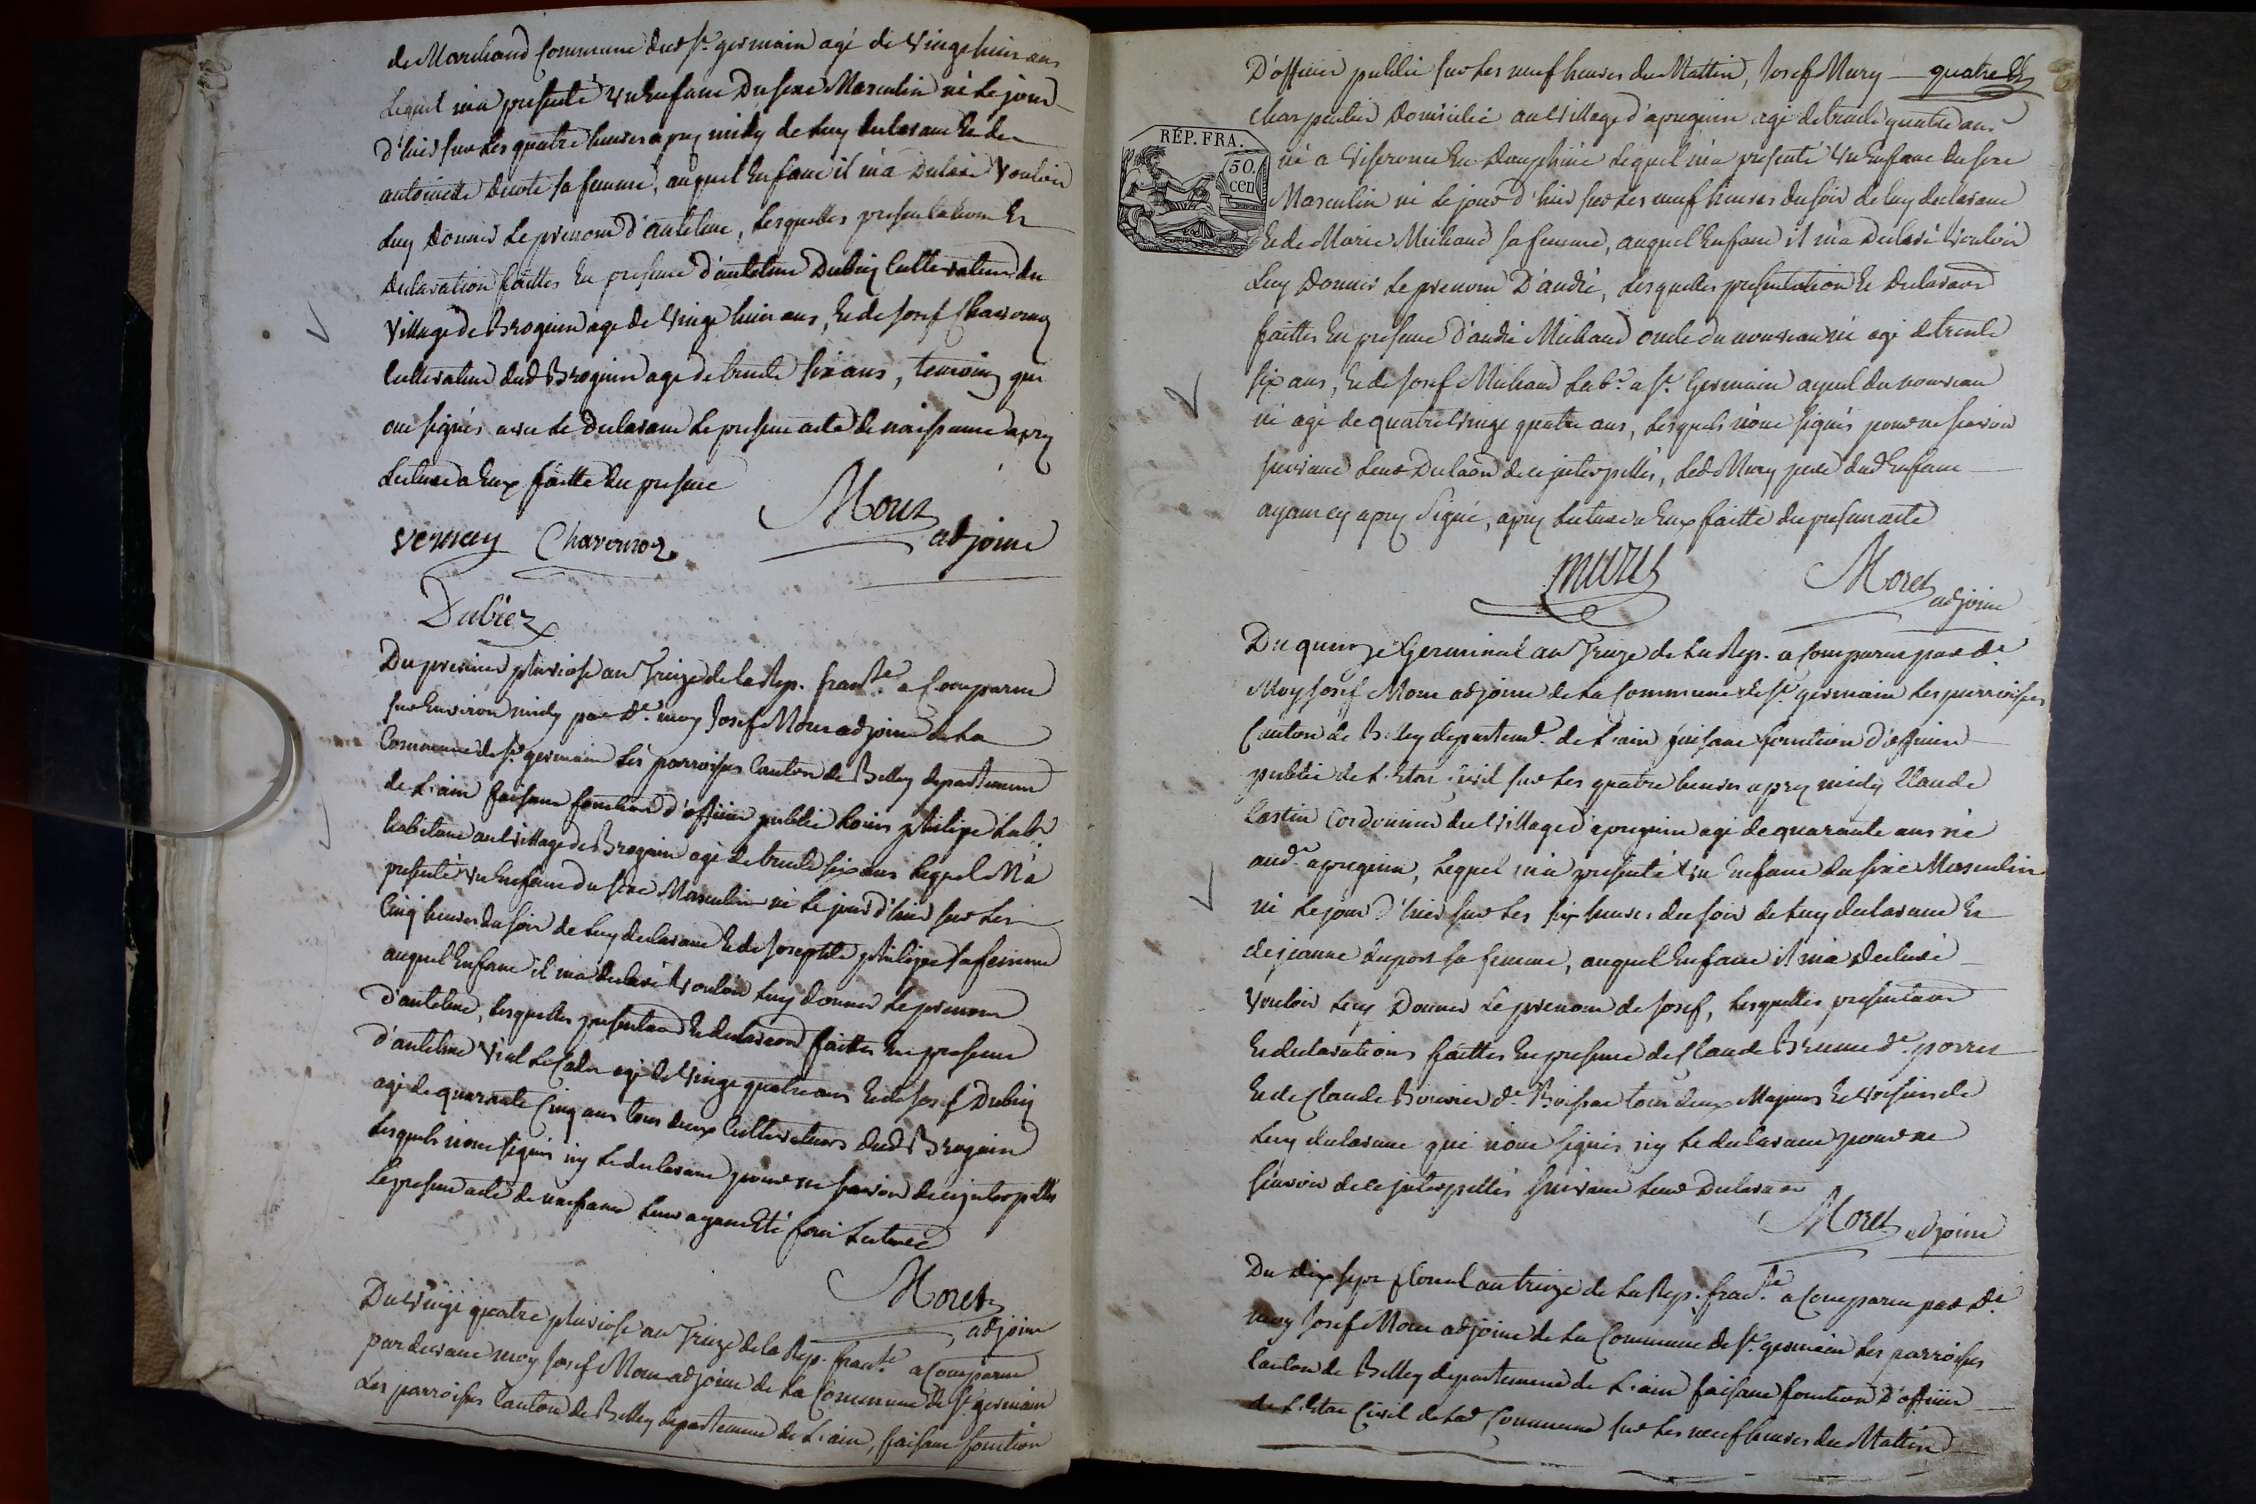 de Marchand Commune dud St germain agé de vingt huit ans
Lequel m'a présenté un Enfant Du sexe Masculin né Le jour
d'hier sur Les quatre heures apres midy de Luy declarant Et de
antoinette sa femme, auquel Enfant il m'a Declaré Vouloir
Luy Donner Le prenom d'antelme, Lesquelles presentation Et
Declaration faittes En presence d'antelme Dubiez Cultivateur du
Village de Brognin age de vingt huit ans, Et de Josef Chavornoz
Cultivateur dud Brognin age de trente six ans, temoins qui
ont signés avec Le Declarant Le present acte de naissance apres
Lecture a Eux faitte du present
Moret
adjoint
vernay Chavornoz
Dubiez
Du premier pluviose an Treize de la Rep. franse a Comparu
sur Environ midy par dt. moy Josef Moret adjoint de La
Commune de St germain Les parroisses Canton de Belley departement
de L'ain faisant fonction d'officier public Louis philipe Labr
habitant au village de Brognin agé de trente six ans Lequel M'a
presenté un Enfant du sexe Masculin né Le jour d'hier sur Les
Cinq heures du soir de Luy declarant Et de Josephte philipe sa femme
auquel Enfant il m'a declaré Vouloir Luy donner Le prenom
d'antelme, Lesquelles presentaon Et declaraon faittes En presence
d'antelme Vial Le Cadet agé de vingt quatre ans Et de Josef Dubiez
agé de quarante Cinq ans tous deux Cultivateurs dud Brognin
Lesquels n'ont signés ny Le declarant pour ne scavoir de ce interpellés
Le present acte de naissance Leur ayant Eté fait Lecture
Moret
adjoint
Du vingt quatre pluviose an Treize de la Rep. franse a Comparu
par devant moy Josef Moret adjoint de La Commune de St germain
Les parroisses Canton de Belley departement de L'ain, faisant fonction
D'officier public sur Les neuf heures du Mattin, Josef Mury quatre
charpentier Domicilié au village d'apregnin agé de trente quatre ans
RÉP. FRA.
50.
cen
né a En Dauphiné Lequel m'a presenté un Enfant du sexe
Masculin né Le jour d'hier sur Les neuf heures du soir de Luy declarant
Et de Marie Michaud sa femme, auquel Enfant il m'a Declaré Vouloir
Luy Donner Le prenom D'andré, Lesquelles presentation Et Declaraon
faittes En presence d'andré Michaud oncle du nouveau né agé de trente
six ans, Et de Josef Michaud Labr. a St. Germain ayeul du nouveau
né agé de quatre vingt quatre ans, Lesquels n'ont signés pour ne scavoir
suivant Leur Declaon de ce interpellés, Led Mury pere dud Enfant
ayant cy apres signé, apres Lecture a Eux faitte du present acte
Moret
adjoint
Du quinze Germinal an Treize de La Rep. a Comparu par dt
Moy Josef Moret adjoint de La Commune de St germain Les parroisses
Canton de Belley departemt. de L'ain faisant fonction d'officier
public de L'Etat Civil sur Les quatre heures apres midy Claude
Castin Cordonnier du village d'apregnin agé de quarante ans né
aud. apregnin, Lequel m'a presenté un Enfant du sexe Masculin
né Le jour d'hier sur Les six heures du soir de Luy declarant Et
de jeanne duport sa femme, auquel Enfant il m'a Declaré
Vouloir Luy Donner Le prenom de Josef, Lesquelles presentaon
Et declarations faittes En presence de Claude Brunet dt. porret
Et de Claude Bouvier dt. tous deux Majeurs Et voisins de
Luy declarant qui n'ont signés ny Le declarant pour ne
scavoir de ce interpellés suivant Leur Declaraon
Moret adjoint
Du dix sept floreal an treize de La Rep. franse a Comparu par dt
moy Josef Moret adjoint de La Commune de St. germain Les parroisses
Canton de Belley departement de L'ain faisant fonction D'officier
de L'Etat Civil de Lad Commune sur Les neuf heures du Mattin